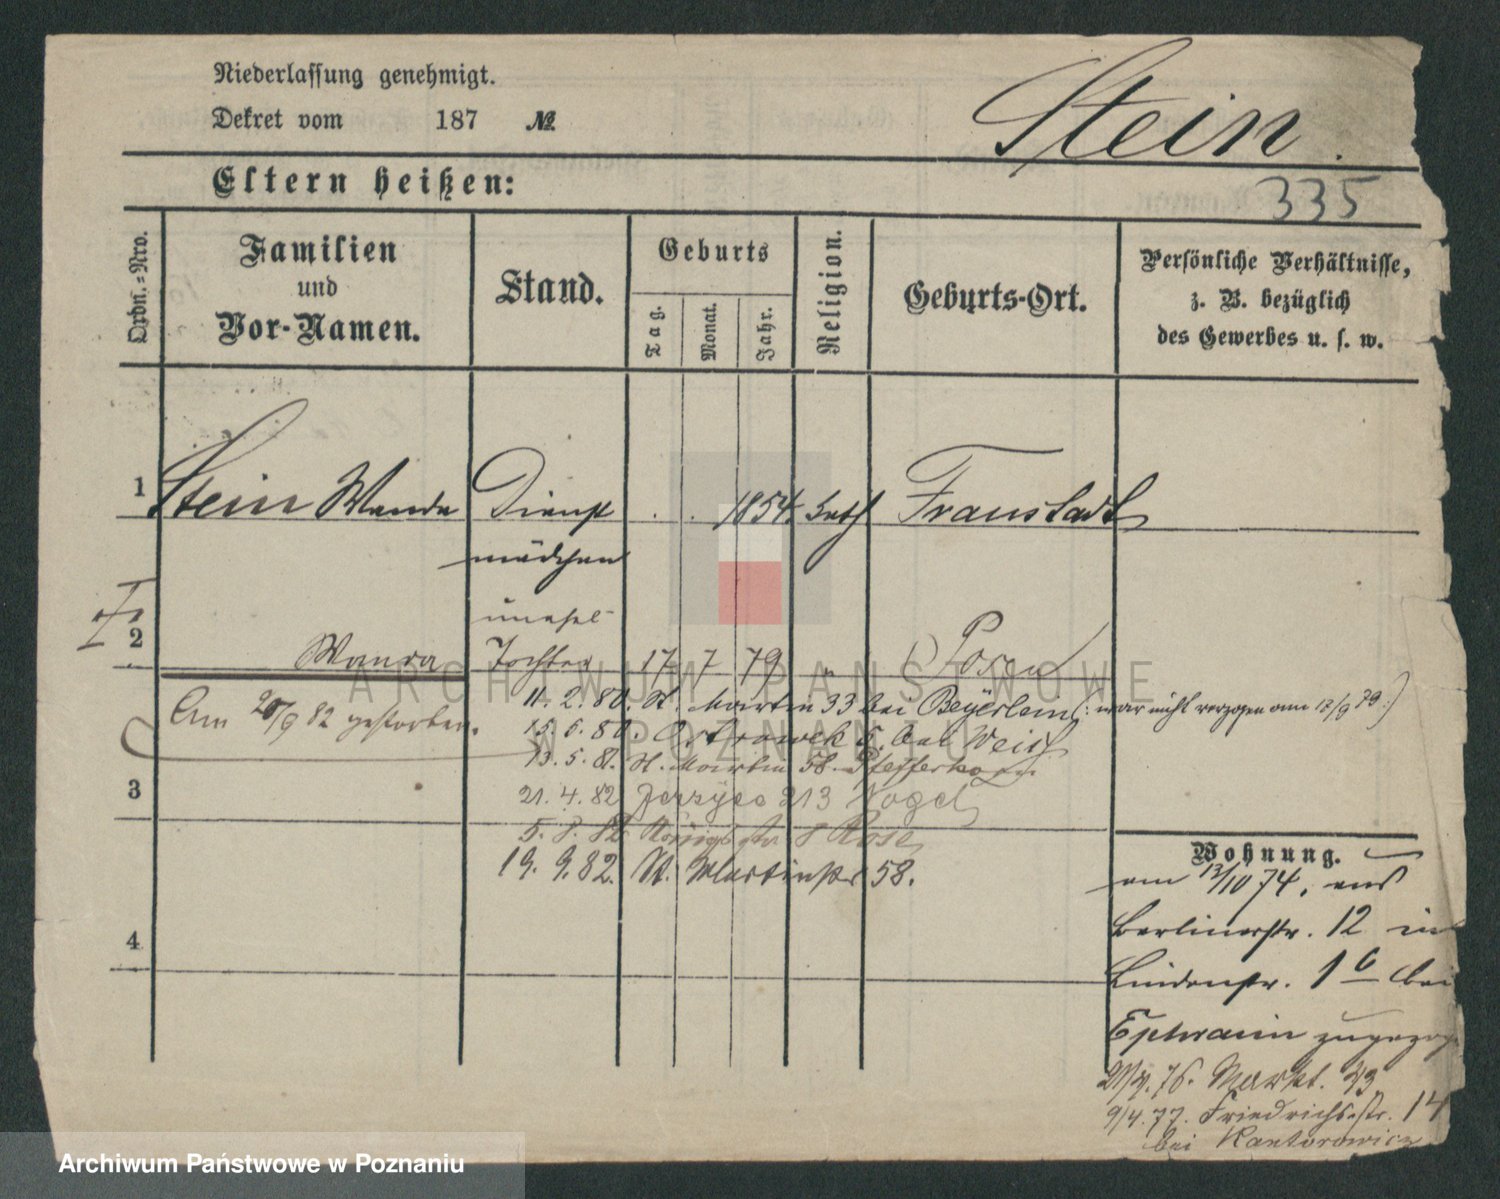 Niederlassung genehmigt.
Dekret vom 187 №
Stein.
Eltern heißen:
335
Ordn.=Nro.
Familien
und
Vor-Namen.
Stand.
Geburts
Tag.
Monat.
Jahr.
Religion.
Geburts-Ort.
Persönliche Verhältnisse,
z. B. bezüglich
des Gewerbes u. s. w.
1 Stein Wanda Dienst 1854 kath Fraustadt
mädchen
unehel
2 Wanda Tochter 17 7 79 " Posen
ARCHIWUM PAŃSTWOWE
W POZNANIU
11. 2. 80. St. Martin 33 bei Beyerlein (: war nicht verzogen am 12/9 79 :)
Am 20/9 82 gestorben.
15. 6. 80. Ostrowek 5. bei Weiß
13. 5. 81. St. Martin 58. Pfefferkorn
3
21. 4. 82 Jerzyce 213 Vogel
5. 8. 82 Königsstr 8 Rose
19. 9. 82. St. Martinstr 58.
4
Wohnung.
am 13/10 74, aus
Berlinerstr. 12 in
Lindenstr. 16 bei
Ephraim
76. Markt. 43
9/4. 77. Friedrichsstr. 14
bei Kantorowicz
Archiwum Państwowe w Poznaniu